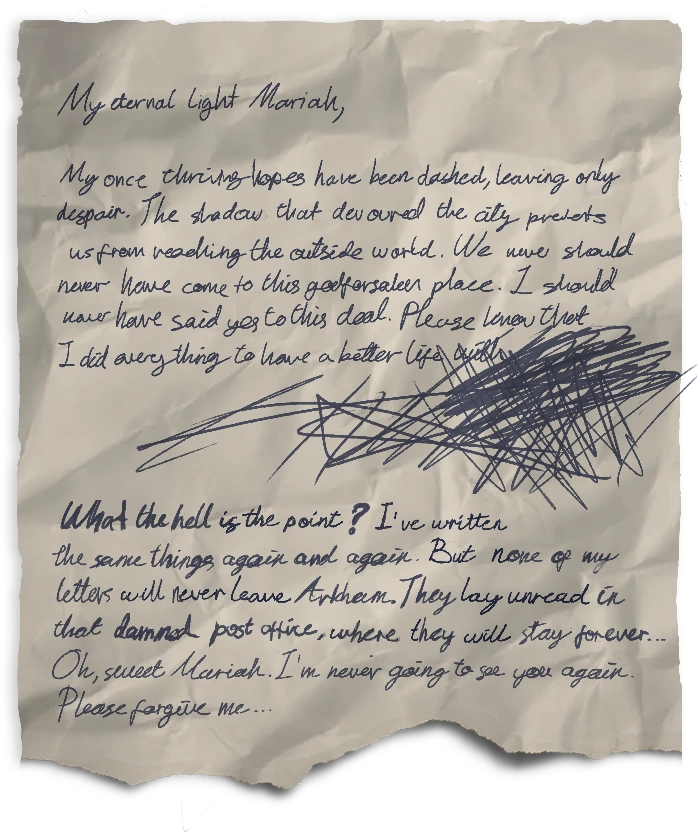 My eternal light Mariah,
My once thriving hopes have been dashed, leaving only
despair. The shadow that devoured the city prevents
us from reaching the outside world. We never should
never have come to this godforsaken place. I should
never have said yes to this deal. Please know that
I did everything to have a better life with
What the hell is the point? I've written
the same things again and again. But none of my
letters will never leave Arkham. They lay unread in
that damned post office, where they will stay forever...
Oh, sweet Mariah. I'm never going to see you again.
Please forgive me...